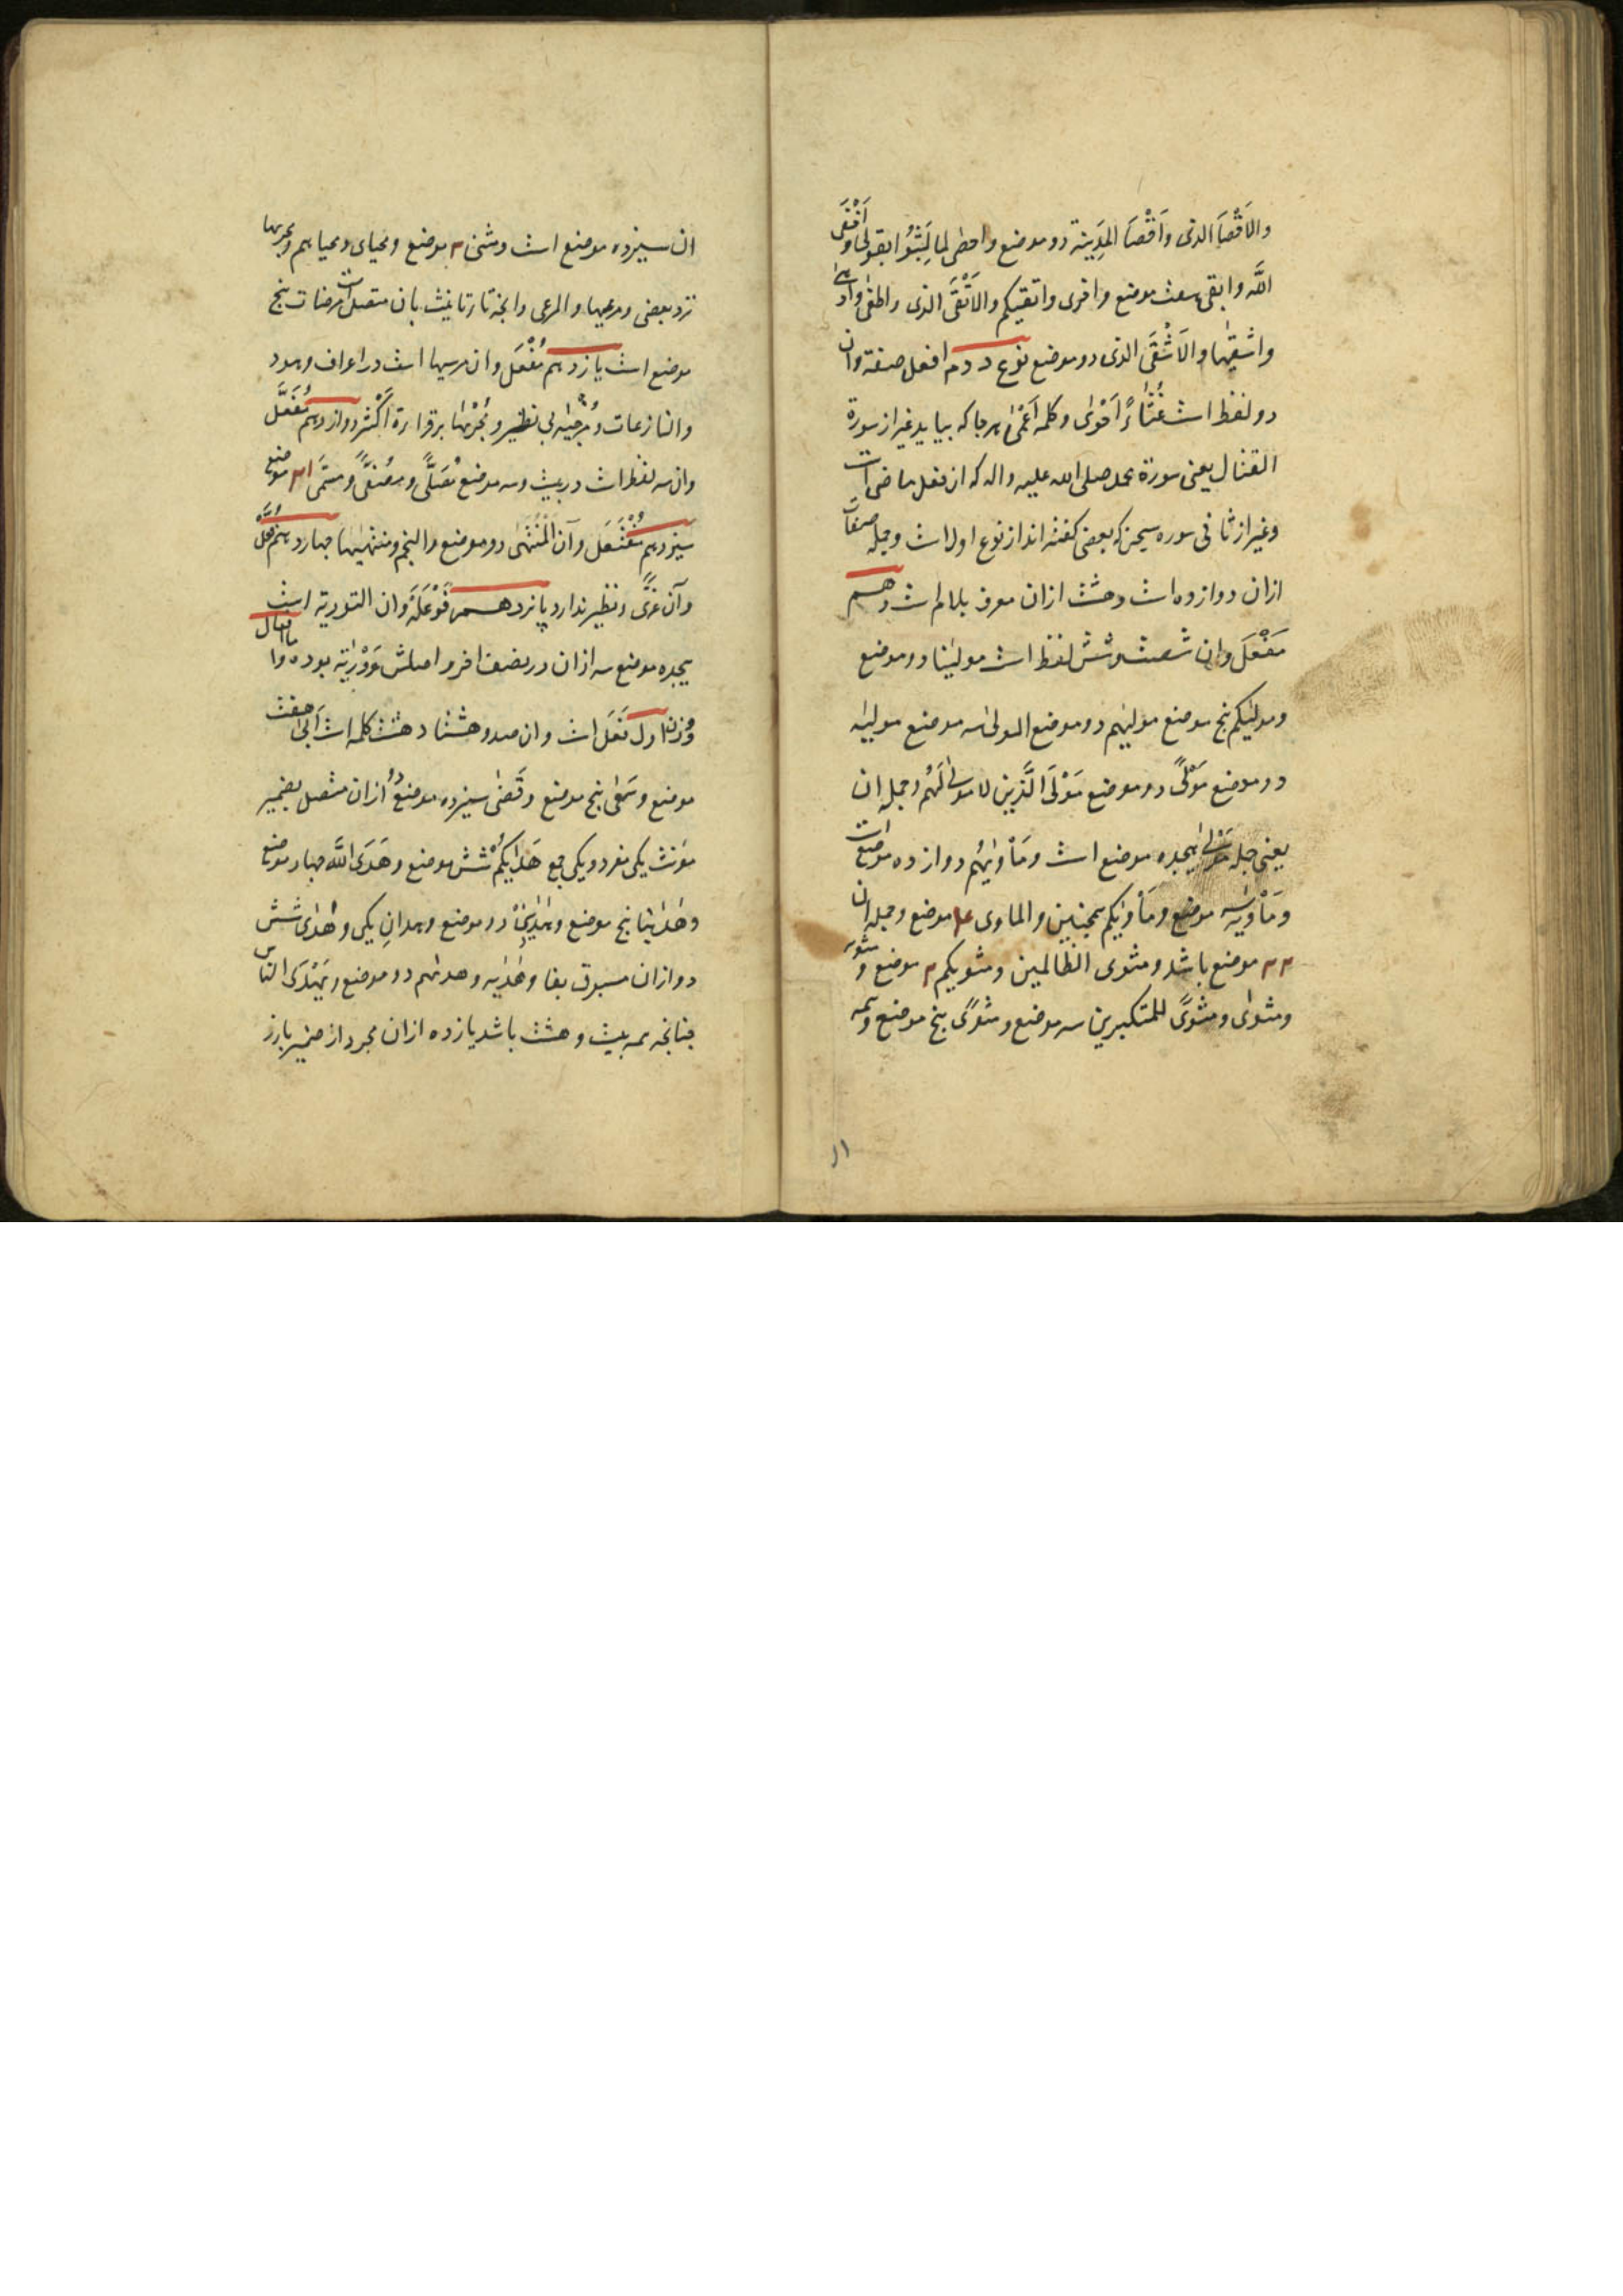 والاَقْصَا الذی واَقْصَا المَدِینة دو موضع واحصٰی لما لَبِثُوْا بقولی و اَتْقٰی
اللّه وابقی هفت موضع واخری واتقیکم والاَتْقَی الذی واطغٰی وادنٰی
واشقیٰها والاَشْقَی الذی دو موضع نوع دوم افعل صفة وان
دو لفظ است غُثَاءً اَحْوٰی وکلمه اَعْمٰی هرجا که بیاید غیر از سورة
القتال یعنی سورة محمد صلی الله علیه واله که از فعل ماضی است
وغیر از ثانی سوره سبحن که بعضی کفته اند از نوع اول است وجمله صفات
ازان دوازده است وهشت ازان معرف بلام است دهم
مَفْعَل وان شصت وشش لفظ است مولینا دو موضع
ومولیٰکم پنج موضع مولیٰهم دو موضع المولی سه موضع مولیٰه
دو موضع مَوْلًی دو موضع مَوْلَی الَّذین لا مولٰی لَهُم وجمله ان
یعنی جمله مَوْلٰی هیجده موضع است ومَأوٰیهُم دوازده موضع است
ومَأْوٰیه سه موضع ومَأْوٰیکم همچنین والماوی ۴ موضع وجمله ان
۲۲ موضع باشد ومثوی الظالمین ومثویکم ۲ موضع و مثویه
ومثوای ومثوًی للمتکبرین سه موضع ومثوًی پنج موضع وهمه
ان سیزده موضع است ومثنی ۳ موضع ومحیای ومحیاهم ومجریها
نزد بعضی ومرعیها والمرعی وانجه تا تانیث بان متصل است مرضات پنج
موضع است یازدهم مُفْعَل وان مرسیها است در اعراف وهود
والنازعات ومُزجیٰه بی نظیر ومُجْریٰها برقراءة اَکْثَر دوازدهم مُفَعَّل
وان سه لفظ است در بیست وسه موضع مُصَلًّی ومُصَفًّی ومسَمًّی ۲۱ موضع
سیزدهم مُفْتَعَل وآن الْمُنْتَهٰی دو موضع والنجم ومنتهیٰها چهاردهم فُعَّل
وآن غُزًّی ونظیر ندارد پانزدهم فَوْعَلَة وان التوریة است
هیجده موضع سه ازان در نصف اخر واصلش وَوْرَیَة بوده واما افعال
وزن اول فَعَل است وان صد وهشتاد وهشت کلمه است اَبٰی هفت
موضع وسَعٰی پنج موضع وقَضٰی سیزده موضع دو ازان متصل بضمیر
مؤنث یکی مفرد ویکی جمع هَدٰیکُم شش موضع وهَدَی اللّه چهار موضع
وهدٰینا پنج موضع وهَدٰینِیْ دو موضع وهدانِ یکی وهَدٰی شش
دو ازان مسبوق بفا وهَدٰیه وهدیهم دو موضع ویَهْدَی النّاس
چنانچه همه بیست وهشت باشد یازده ازان مجرد از ضمیر بارز